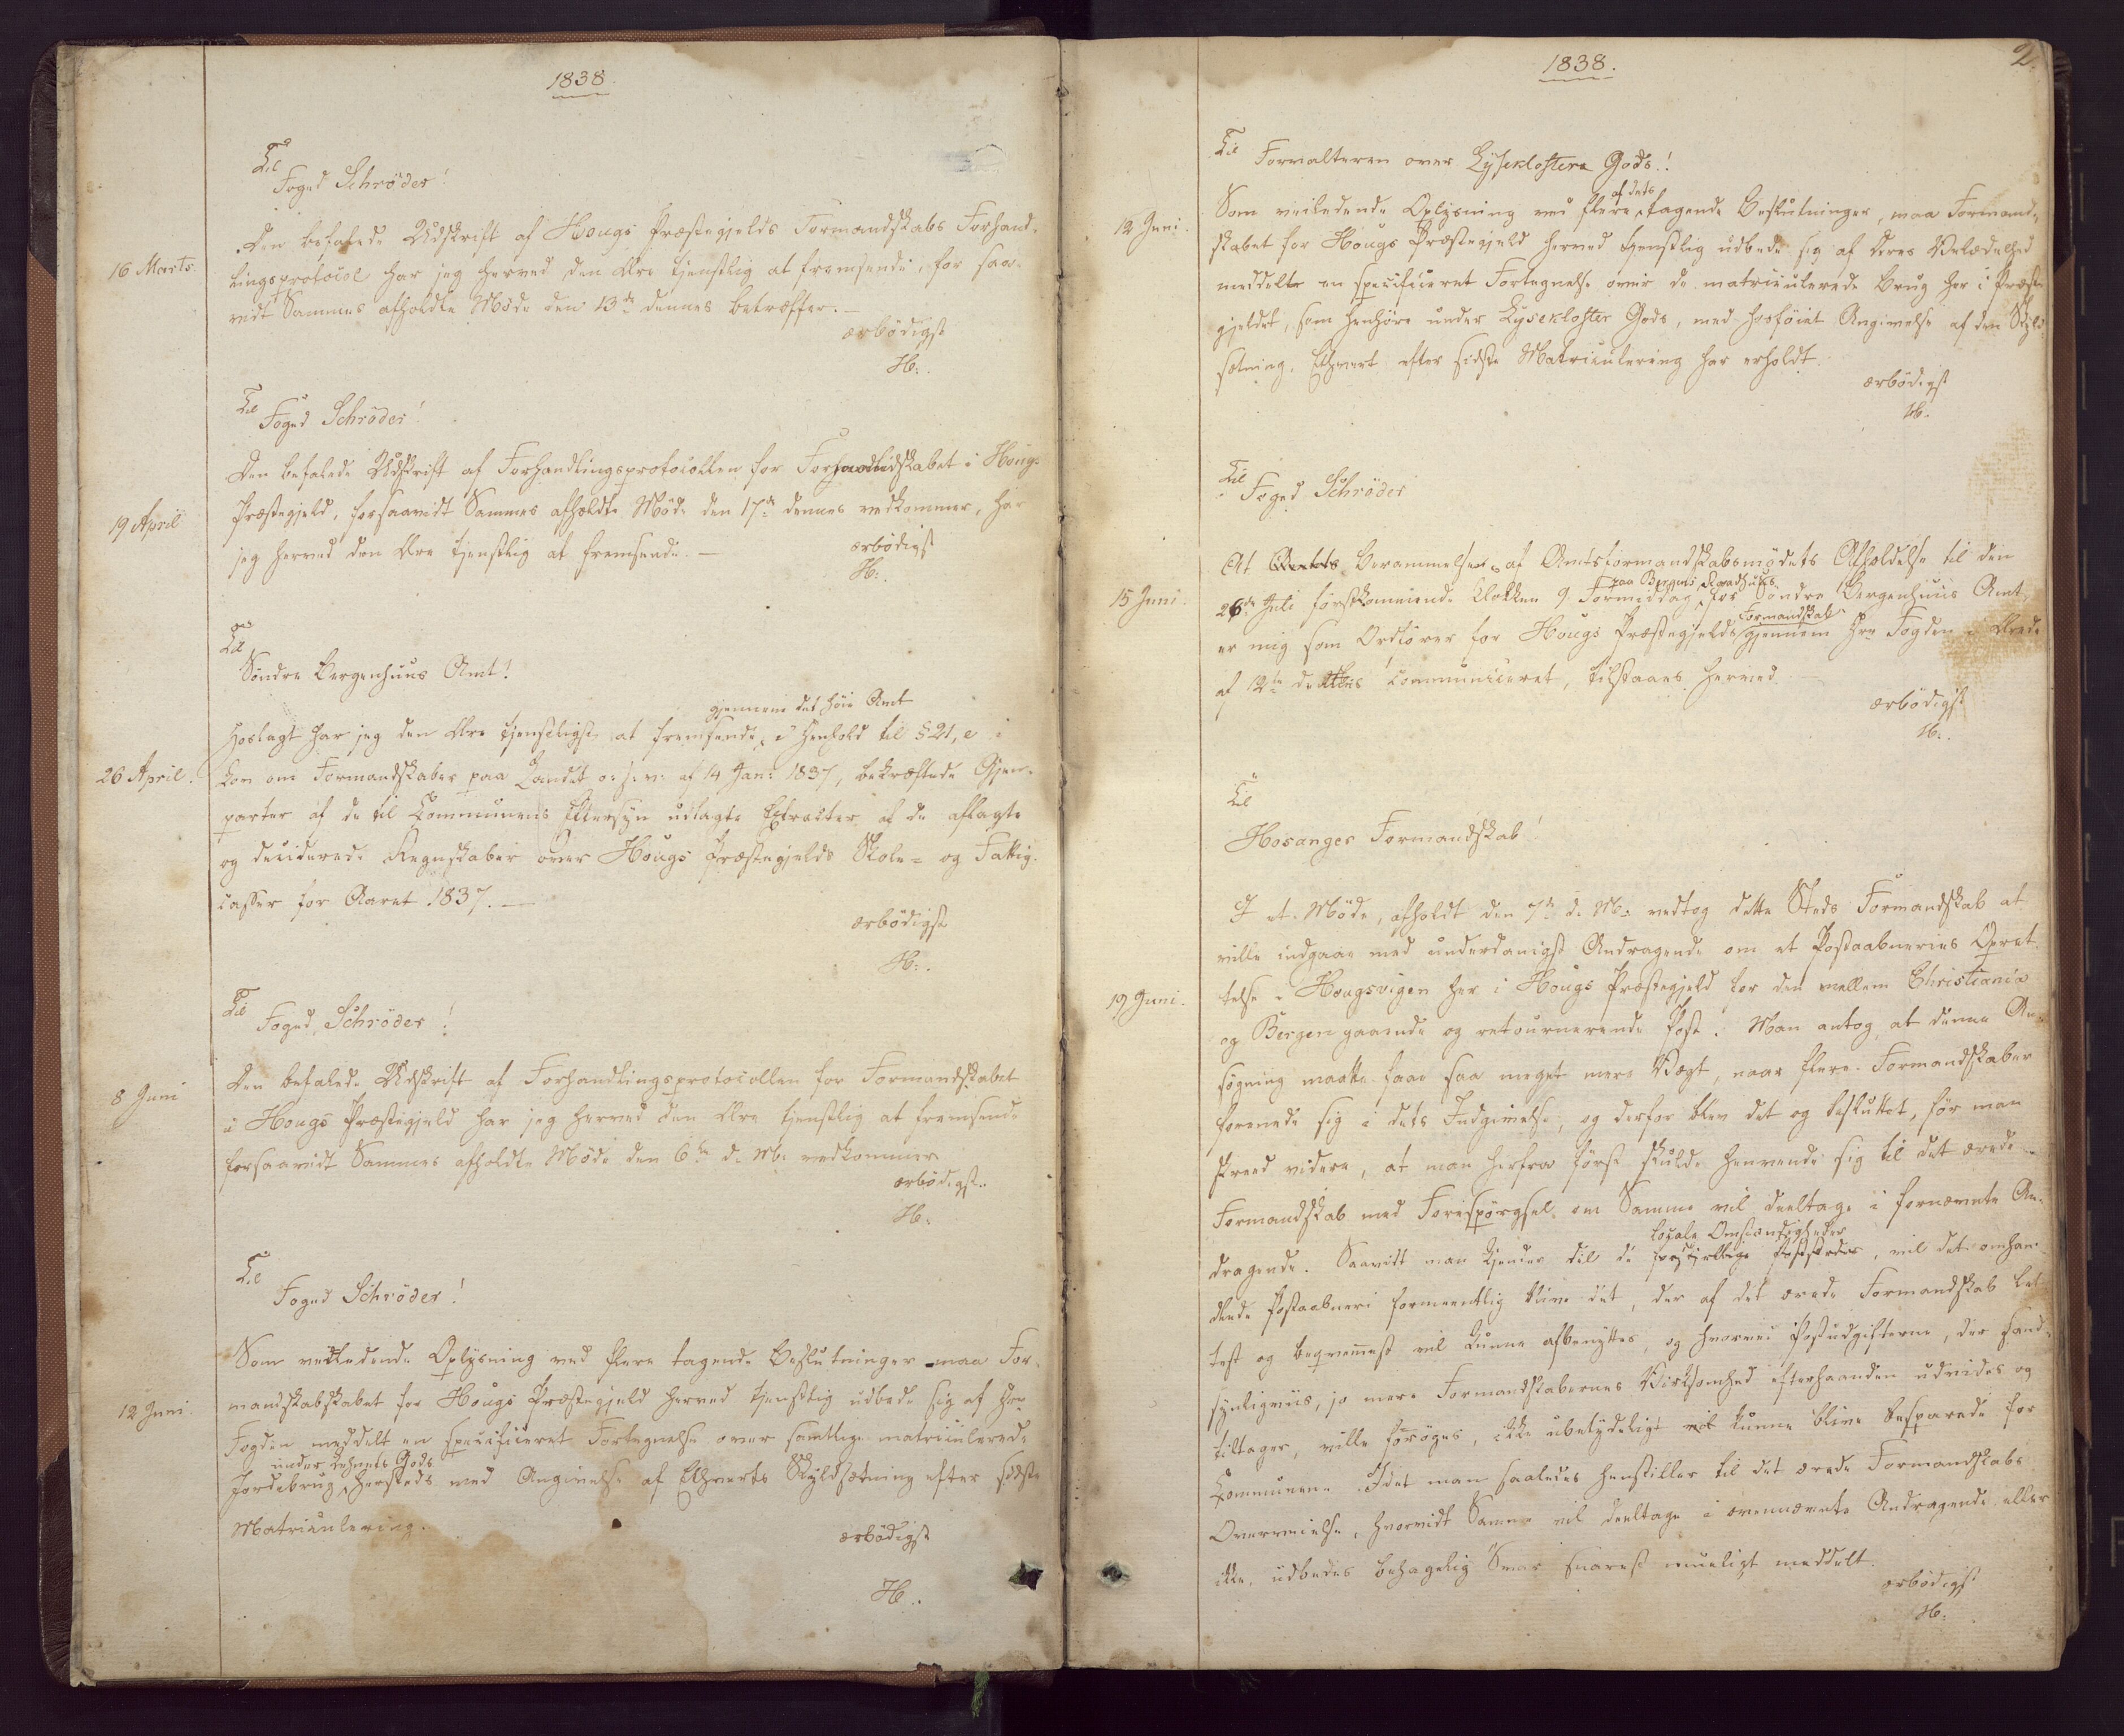 1838
Til
Foged Schrøder!
16 Marts.
Den befalede Udskrift af Hougs Præstegjelds Formandskabs Forhand-
lingsprotocol har jeg herved den Ære tjenstlig at fremsende, for saa-
vidt Sammes afholdte Møde den 13de dennes betræffer.—
ærbødigst
H:.
Til
Foged Schrøder!
19 April
Den befalede Udskrift af Forhandlingsprotocollen for Formandskabet i Hougs
Præstegjeld, forsaavidt Sammes afholdte Møde den 17de dennes vedkommer, har
jeg herved den Ære tjenstlig at fremsende.—
ærbødigst
H:.
Til
Søndre Bergenhuus Amt!
26 April.
gjennem det høie Amt
Hoslagt har jeg den Ære tjenstligst at fremsende, i Henhold til § 21, e i
Lov om Formandskaber paa Landet o. s. v. af 14 Jan: 1837, bekræftede Gjen-
parter af de til Communens Eftersyn udlagte Extracter af de aflagte
og deciderede Regnskaber over Hougs Præstegjelds Skole- og Fattig-
casser for Aaret 1837.—
ærbødigst
H:.
Til
Foged Schrøder!
8 Juni
Den befalede Udskrift af Forhandlingsprotocollen for Formandskabet
i Hougs Præstegjeld har jeg herved den Ære tjenstlig at fremsende
forsaavidt Sammes afholdte Møde den 6te d. M. vedkommer
ærbødigst.
H:
Til
Foged Schrøder!
12 Juni.
Som veiledende Oplysning ved flere tagende Beslutninger maa For-
mandskabskabet for Hougs Præstegjeld herved tjenstlig udbede sig af Hr
Fogden meddelt en specificeret Fortegnelse over samtlige matriculerede
under Lehnets Gods
Jordebrug hersteds med Angivelse af Ethverts Skyldsætning efter sidste
Matriculering.
ærbødigst
H..
1838.
2.
Til
Forvalteren over Lysekloster Gods.!
12 Juni.
af dets
Som veiledende Oplysning ved flere tagende Beslutninger, maa Formand-
skabet for Hougs Præstegjeld herved tjenstlig udbede sig af Deres Velædelhed
meddelt en specificeret Fortegnelse over de matriculerede Brug her i Præste
gjeldet, som henhøre under Lysekloster Gods, med hosføiet Angivelse af den Skyld
sætning, Ethvert efter sidste Matriculering har erholdt.
ærbødigst
H.
Til
Foged Schrøder
15 Juni.
At Berammelsen af Amtsformandskabsmødets Afholdelse til den
paa Bergens Raadhuus
26de Juli førstkommende Klokken 9 Formiddag for Søndre Bergenhuus Amt
Formandskab
er mig som Ordfører for Hougs Præstegjelds gjennem Hr Fogden i Brev
af 12te dennes communiceret, tilstaaes herved.—
ærbødigst
H:.
Til
Hosanger Formandskab!
19 Juni.
I et Møde, afholdt den 7de d. M. vedtog dette Steds Formandskab at
ville indgaae med underdanigst Andragende om et Postaabneries Opret-
telse i Hougsvigen her i Hougs Præstegjeld for den mellem Christiania
og Bergen gaaende og retournerende Post. Man antog at denne An-
søgning maatte faae saa meget mere Vægt, naar flere Formandskaber
forenede sig i dets Indgivelse, og derfor blev det og besluttet, før man
skreed videre, at man herfra først skulde henvende sig til det ærede
Formandskab med Forespørgsel om Samme vil deeltage i fornævnte An-
locale Omstændigheder
dragende. Saavidt man kjender til de , vil det omhan-
dlede Postaabneri formeentlig blive det, der af det ærede Formandskab let-
test og beqvemest vil kunne afbenyttes, og hvorved Postudgifterne, der sand-
synligviis, jo mere Formandskabernes Virksomhed efterhaanden udvides og
tiltager, ville forøges, ikke ubetydeligt vil kunne blive besparede for
Communen. Idet man saaledes henstiller til det ærede Formandskabs
Overveielse, hvorvidt Samme vil deeltage i ovennævnte Andragende eller
ikke, udbedes behagelig Svar snarest mueligt meddelt.
ærbødigst
H: